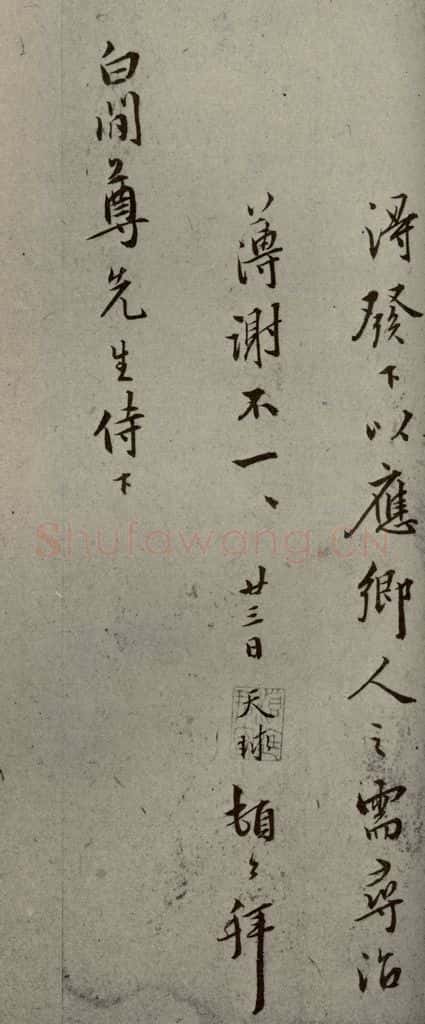 得發下以應鄉人之需尋治
薄謝不一、廿三日天球頓〻拜
白閒尊先生侍下
Shufawang.CN